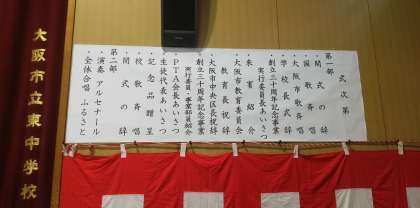 式次第
第一部
・開式の辞
・国歌斉唱
・大阪市歌斉唱
・学校長式辞
・創立三十周年記念事業
実行委員長あいさつ
・来賓紹介
大阪市教育委員会
教育長祝辞
大阪市中央区長祝辞
・創立三十周年記念事業
実行委員・事業部員紹介
・PTA会長あいさつ
・生徒代表あいさつ
・記念品贈呈
・校歌斉唱
・閉式の辞
第二部
・演奏 アルセナール
・全体合唱 ふるさと
大阪市立東中学校